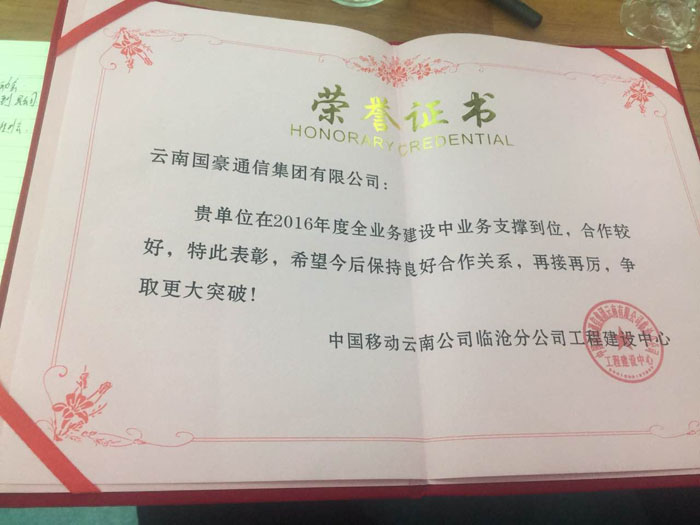 荣誉证书
HONORARY CREDENTIAL
云南国豪通信集团有限公司：
贵单位在2016年度全业务建设中业务支撑到位，合作较
好，特此表彰，希望今后保持良好合作关系，再接再厉，争
取更大突破！
中国移动云南公司临沧分公司工程建设中心
工程建设中心